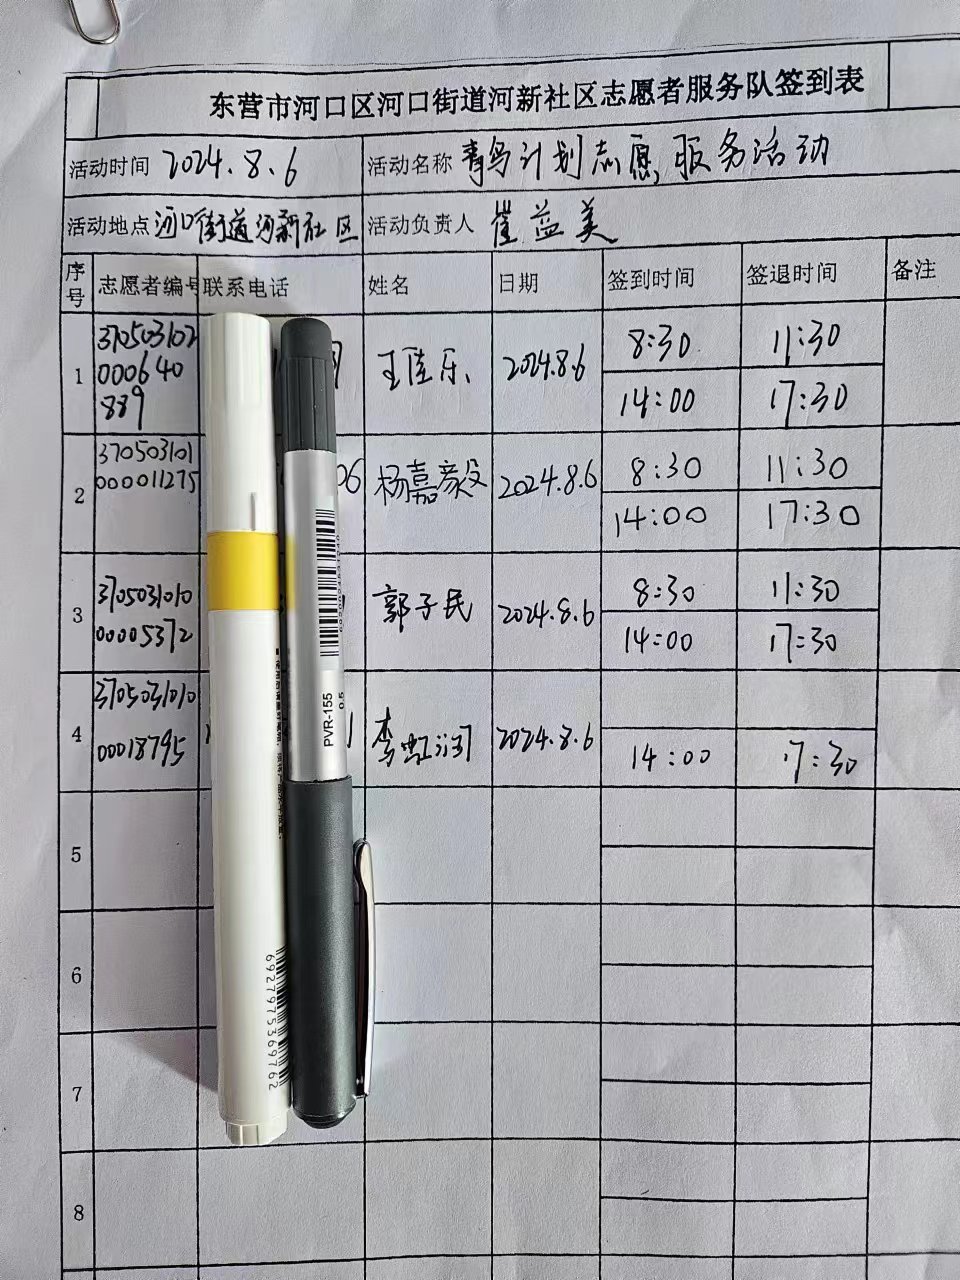 东营市河口区河口街道河新社区志愿者服务队签到表
活动时间 2024.8.6 活动名称 青鸟计划志愿服务活动
活动地点 河口街道河新社区 活动负责人 崔益美
序号 志愿者编号 联系电话 姓名 日期 签到时间 签退时间 备注
370503102
8:30 11:30
1 000640 王佳乐 2024.8.6
889
14:00 17:30
370503101
8:30 11:30
2 000011275 06 杨嘉毅 2024.8.6
14:00 17:30
3705031010
8:30 11:30
3 郭子民 2024.8.6
00005372
14:00 17:30
3705031010
4 00018795 1 李虹润 2024.8.6
14:00 17:30
5
6
7
8
PVR-155
0.5
6927975369762